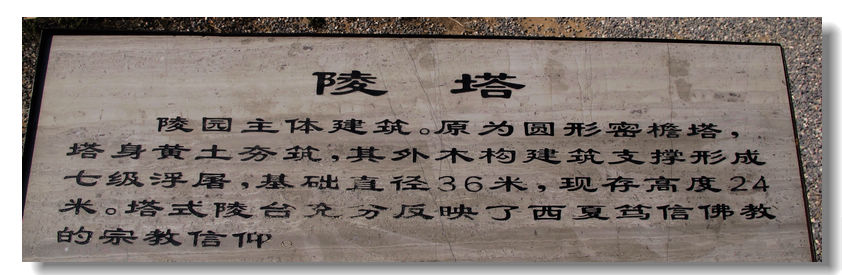 陵塔
陵园主体建筑。原为圆形密檐塔，
塔身黄土夯筑，其外木构建筑支撑形成
七级浮屠，基础直径36米，现存高度24
米。塔式陵台充分反映了西夏笃信佛教
的宗教信仰。